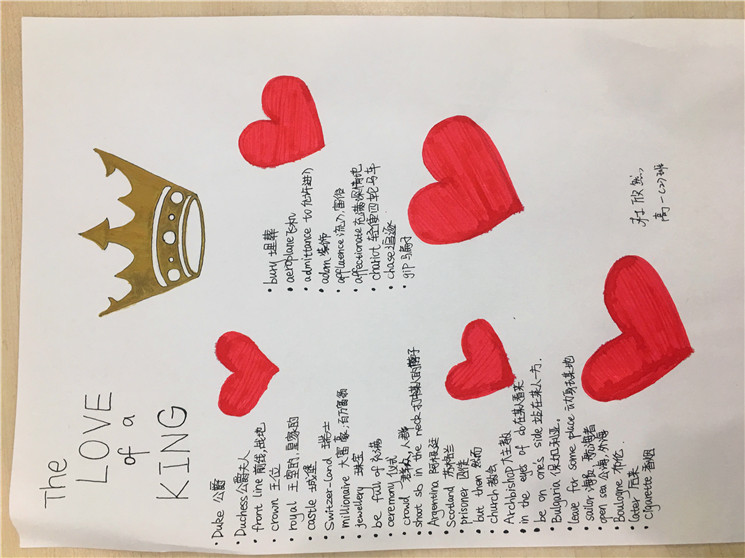 The
LOVE
of a
KING
• Duke 公爵
• Duchess 公爵夫人
• front line 前线,战地
• crown 王位
• royal 王室的,皇家的
• castle 城堡
• Switzer-land 瑞士
• millionaire 大富豪,百万富翁
• jewellery 珠宝
• be full of 充满
• ceremony 仪式
• crowd 人群
• shoot sb in the neck
• Argentina 阿根廷
• Scotland 苏格兰
• prisoner 囚犯
• but then 然而
• church 教会
• Archbishop 大主教
• in the eyes of sb 在某人看来
• be on one's side 站在某人一方.
• Bulgaria 保加利亚.
• leave for some place 动身去某地
• sailor 海员
• open sea 公海,外海
• Boulogne 布伦.
• later 后来
• Cigarette 香烟
• bury 埋葬
• aeroplane 飞机
• admittance to 允许进入
• adorn 装饰
• affluence 流入,富裕
• affectionate 充满深情地
• chariot 轻便四轮马车
• chase 追逐
• gip 马夹子
杜欣然
高一(2)班